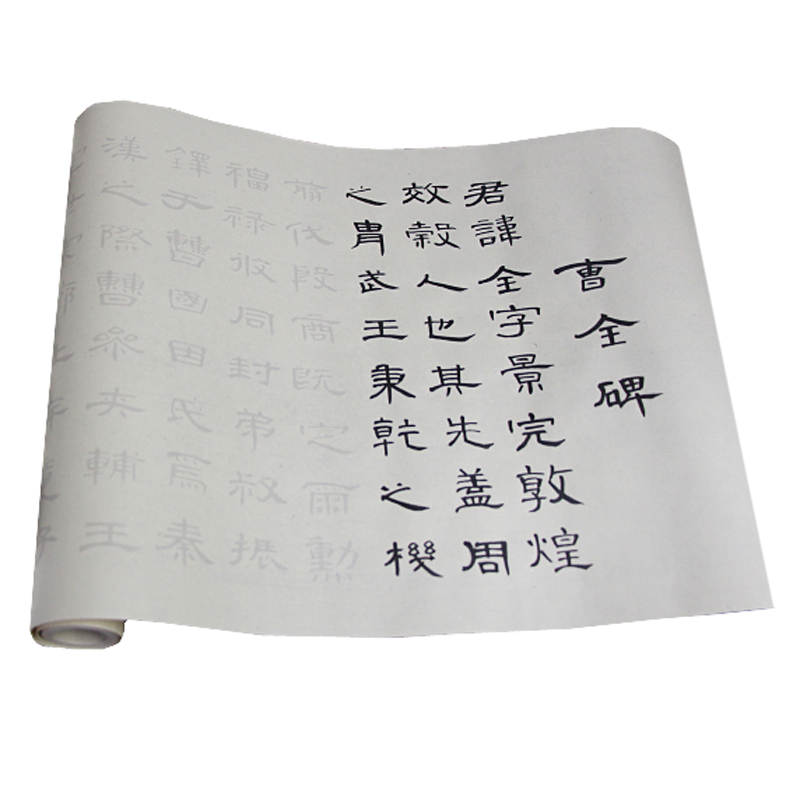 曹全碑
君諱全字景完敦煌
效穀人也其先盖周
之冑武王秉乾之機
翦伐殷商既定爾勳
福祿攸同封弟叔振
鐸于曹國因氏焉秦
漢之際曹參夾輔王